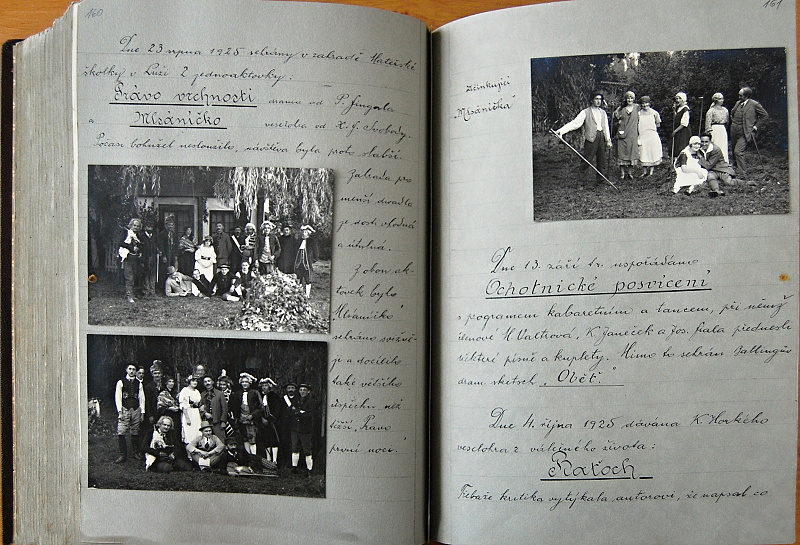 160
Dne 23 srpna 1925 sehrány v zahradě Mateřské
školky v Luži 2 jednoaktovky:
Právo vrchnosti drama od P. Jingosla
a Mlsáníčko veselohra od X. J. Svobody.
Počasí bohužel nesloužilo, návštěva byla proto slabší.
Zahrada pro
menší divadla
je dosti vhodná
a útulná.
Z obou ak-
tovek bylo
Mlsáníčko
sehráno svižně-
ji a docílilo
také většího
úspěchu než
těžší „Právo
první noci."
161
Účinkující
„Mlsáníčka"
Dne 13. září t.r. uspořádáno
Ochotnické posvícení
s programem kabaretním a tancem, při němž
členové H. Valtrová, K. Janeček a Jos. Fiala přednesli
některé písně a kuplety. Mimo to sehrán
dram. sketsch „Oběť."
Dne 4. října 1925 dávána K. Horkého
veselohra z válečného života:
Raťoch
Třebaže kritika vytýkala autorovi, že napsal co